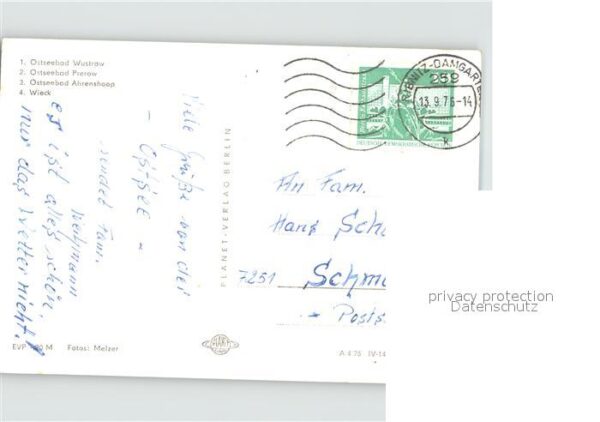 1. Ostseebad Wustrow
2. Ostseebad Prerow
3. Ostseebad Ahrenshoop
4. Wieck
Viele Grüße von der
- Ostsee -
sendet Fam.
es ist alles schön,
nur das Wetter nicht!
EVP M Fotos: Melzer
PLANET-VERLAG BERLIN
A 4 75 IV-14
RIBNITZ-DAMGARTE
259
13.9.76-14
k
DEUTSCHE DEMOKRATISCHE
An Fam.
Hans Sch
7251 Schm
- Posts
privacy protection
Datenschutz